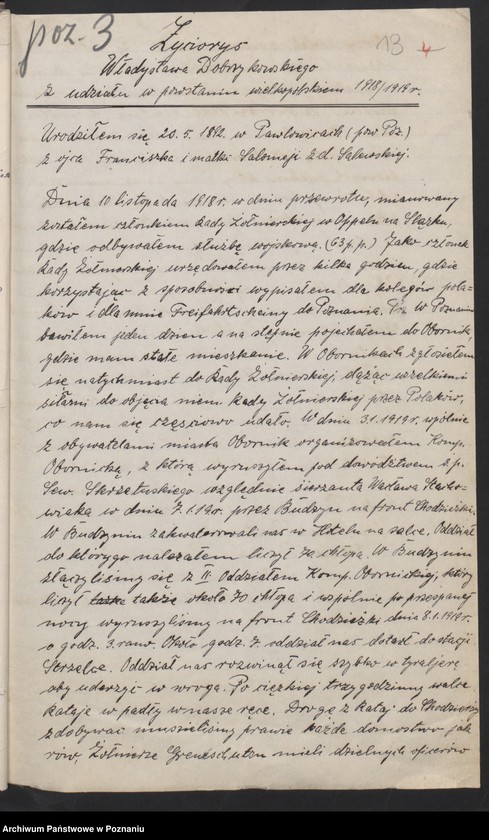 poz. 3
13 4
Życiorys
Władysława Dobrzykowskiego
z udziału w powstaniu wielkopolskiem 1918/1919 r.
Urodziłem się 20.5.1892. w Pawłowicach (pow. Poz.)
z ojca Franciszka i matki Salomeji z d. Salewskiej.
Dnia 10 listopada 1918 r. w dniu przewrotu, mianowany
zostałem członkiem Rady Żołnierskiej w Oppeln na Śląsku,
gdzie odbywałem służbę wojskową. (63 p.p.) Jako członek
Rady Żołnierskiej urzędowałem przez kilka godzin, gdzie
korzystając z sposobności wypisałem dla kolegów pola-
ków i dla mnie Freifahrtscheiny do Poznania. W Poznaniu
bawiłem jeden dzień a na stępnie pojechałem do Obornik,
gdzie mam stałe mieszkanie. W Obornikach zgłosiłem
się natychmiast do Rady Żołnierskiej, dążąc wszelkimi
siłami do objęcia niem. Rady Żołnierskiej przez Polaków,
co nam się częściowo udało. W dniu 3.1.1919 r. wspólnie
z obywatelami miasta Obornik organizowałem Komp.
Obornicką, z którą wyruszyłem pod dowództwem ś.p.
Sew. Skrzetuskiego względnie sierżanta Wacława
wiaka w dniu 7.1.19 r. przez Budzyń na front Chodzieski.
W Budzyniu zakwaterowali nas w Hotelu na salce. Oddział
do którygo należałem liczył 70 chłopa. W Budzyniu
złączyliśmy się z II. Oddziałem Komp. Obornickiej, który
liczył także około 70 chłopa i wspólnie po przespanej
nocy wyruszyliśmy na front Chodzieski dnia 8.1.1919 r.
o godz. 3. rano. Około godz. 7. oddział nas dotarł do stacji
Strzelce. Oddział nas rozwinął się szybko w tyraljerę
aby uderzyć w wroga. Po ciężkiej trzygodzinnej walce
w padły w nasze ręce. Drogę z do Chodzieży
zdobywać musieliśmy prawie każde domostwo jak
rów. Żołnierze Grenzschutzu mieli dzielnych oficerów
Archiwum Państwowe w Poznaniu